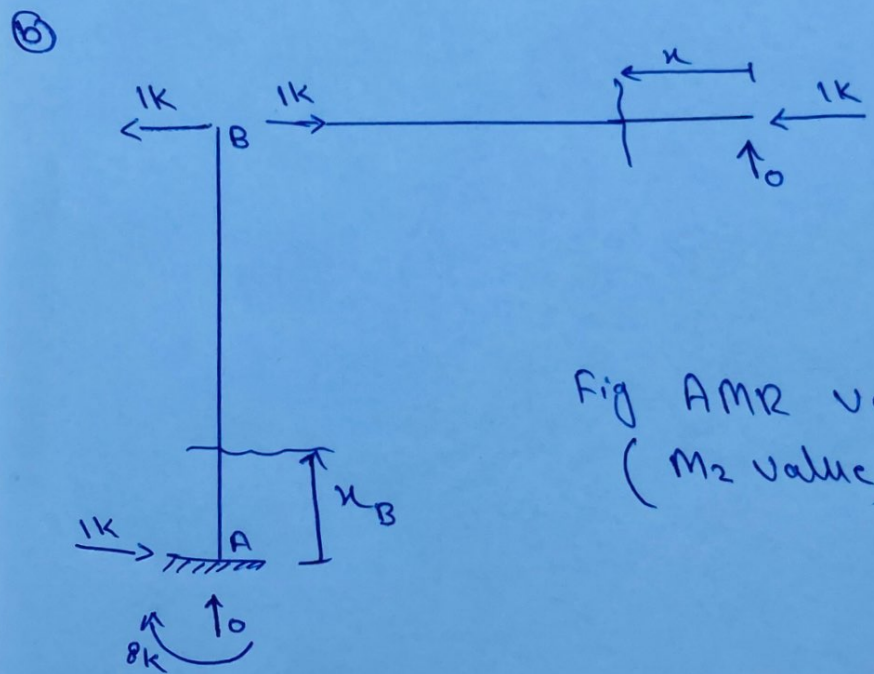 b
x
1K 1K 1K
B
0
Fig AMR
(M2 value
xB
1K A
0
8K